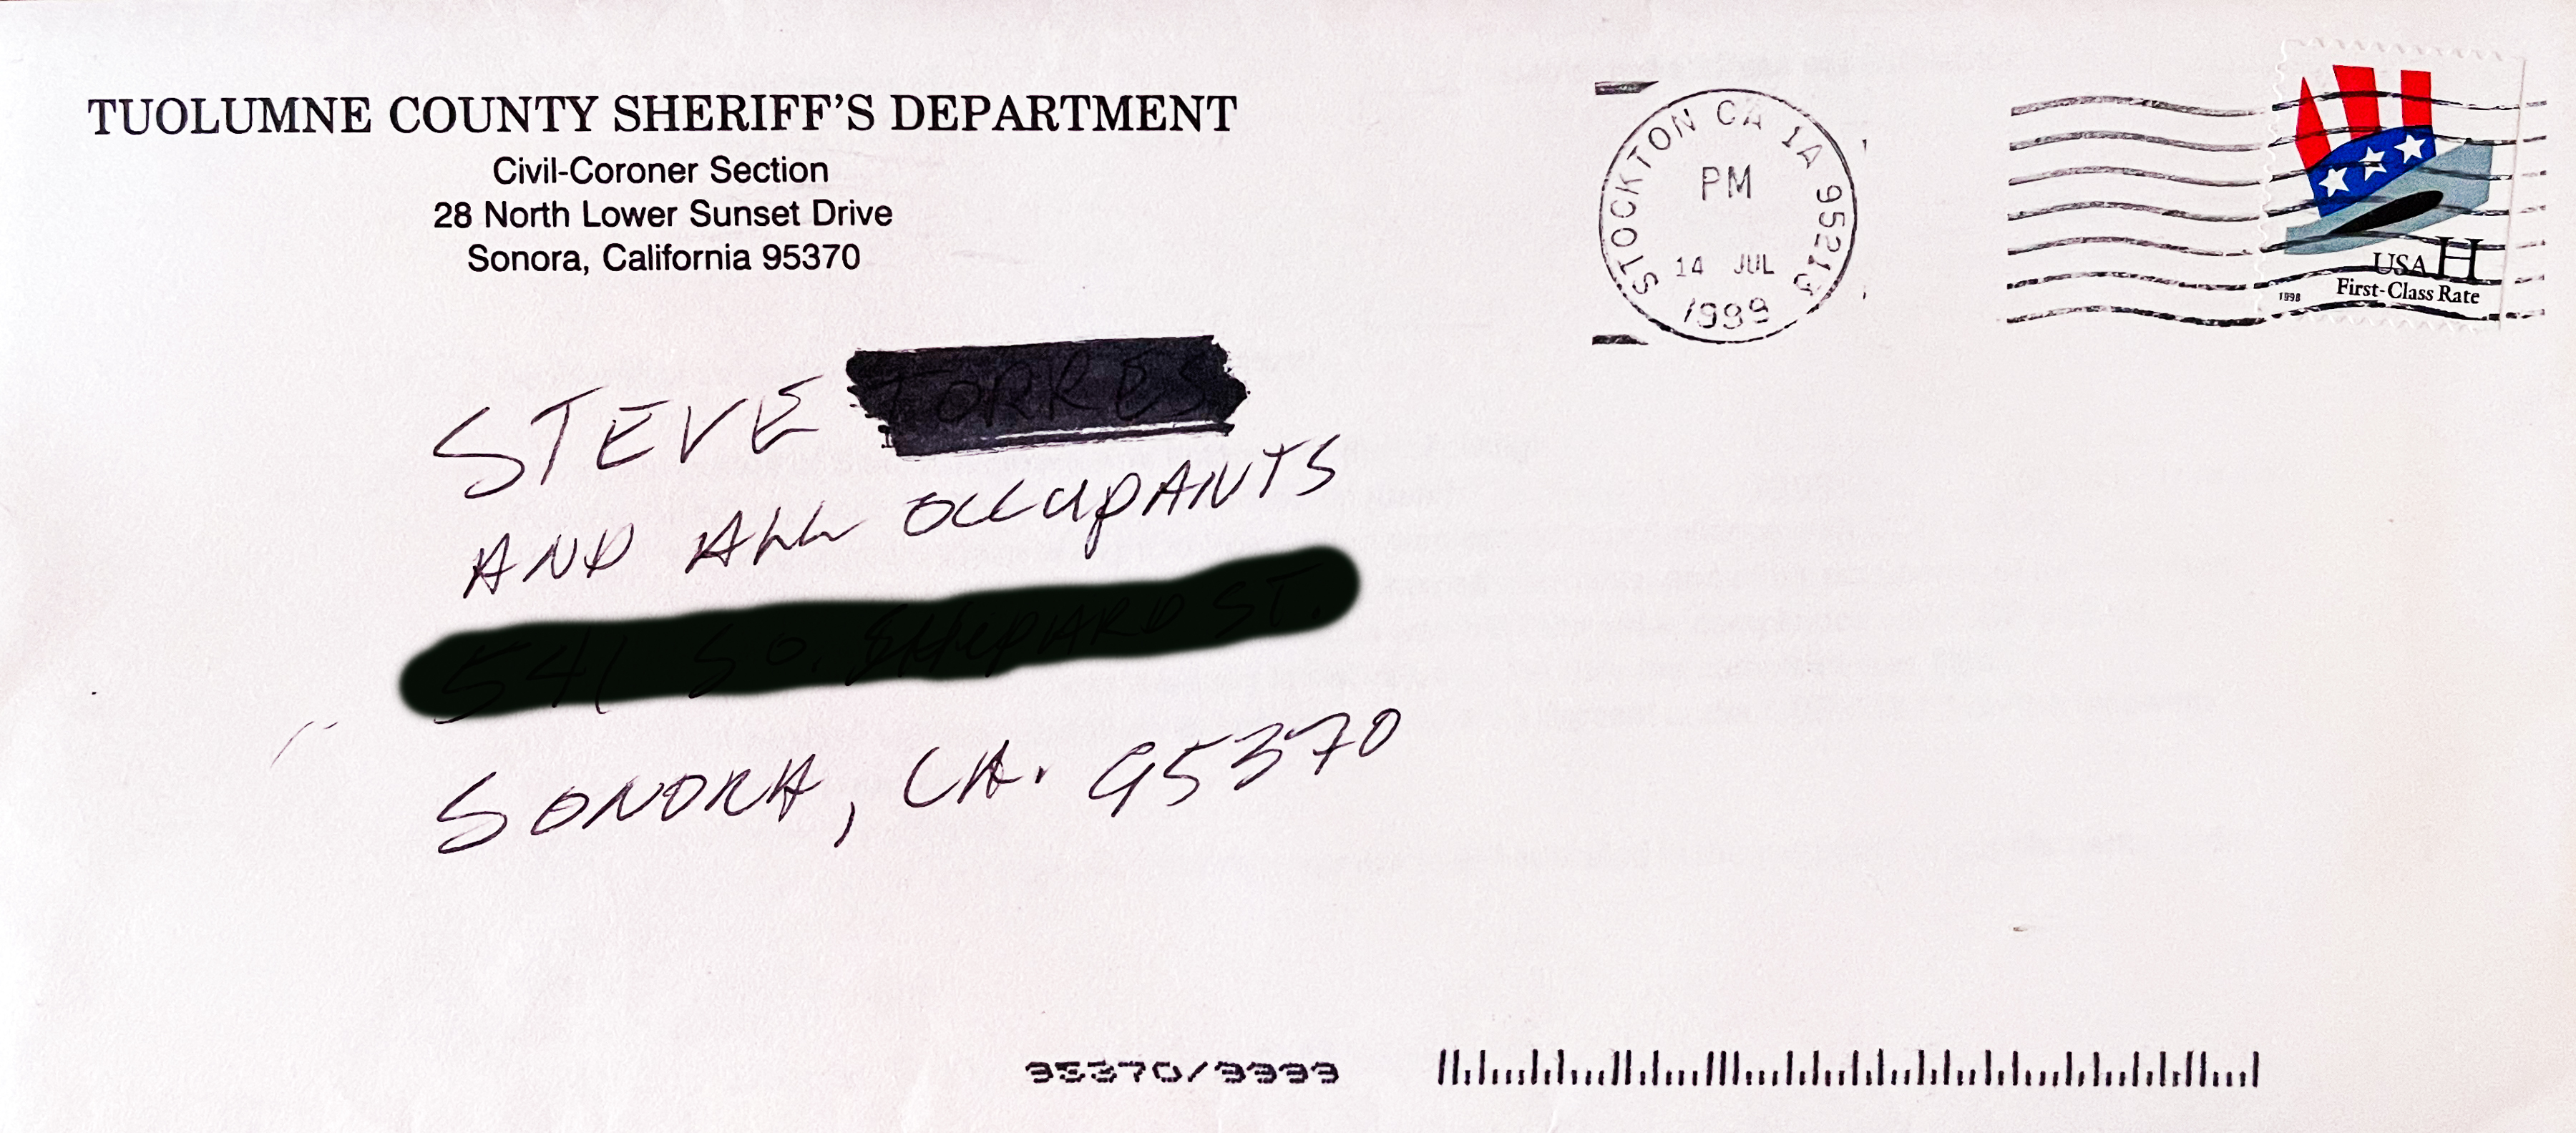 TUOLUMNE COUNTY SHERIFF'S DEPARTMENT
Civil-Coroner Section
28 North Lower Sunset Drive
Sonora, California 95370
STOCKTON CA 1A 95213
PM
14 JUL
1999
USA H
1998 First-Class Rate
STEVE
AND ALL OCCUPANTS
SONORA, CA. 95370
95370/9999